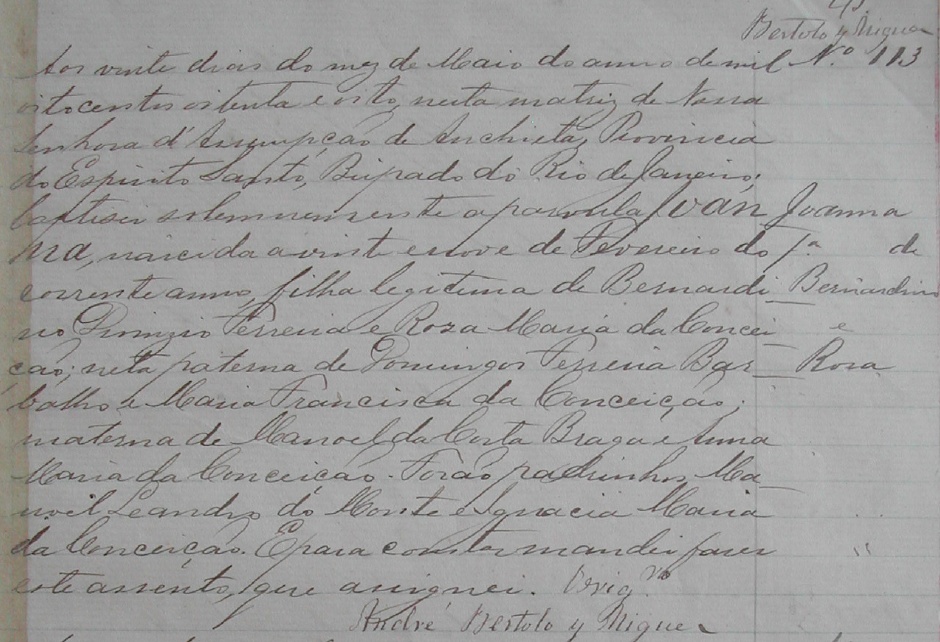 Bertolo y Migue
Nº 113
Aos vinte dias do mez de Maio do anno de mil
oitocentos oitenta e oito, nesta matriz de Nossa
Senhora d'Assumpção de Anchieta, Provincia
do Espirito Santo, Bispado do Rio de Janeiro,
baptisei solemnemente a parvula Joan
na, nascida a vinte e nove de Fevereiro do
corrente anno, filha legitima de Bernardi
no Dionizio Ferreira e Roza Maria da Concei
cão; neta paterna de Domingos Ferreira Bar
balho e Maria Francisca da Conceição;
materna de Manoel da Costa Braga e Anna
Maria da Conceicão. Forão padrinhos, Ma
noel Leandro do Monte e Ignacia Maria
da Conceicão. E para constar mandei faser
este assento, que assignei. Vrigº
André Bertolo y Migue
Joanna
Fª de
Bernardino
e
Rosa